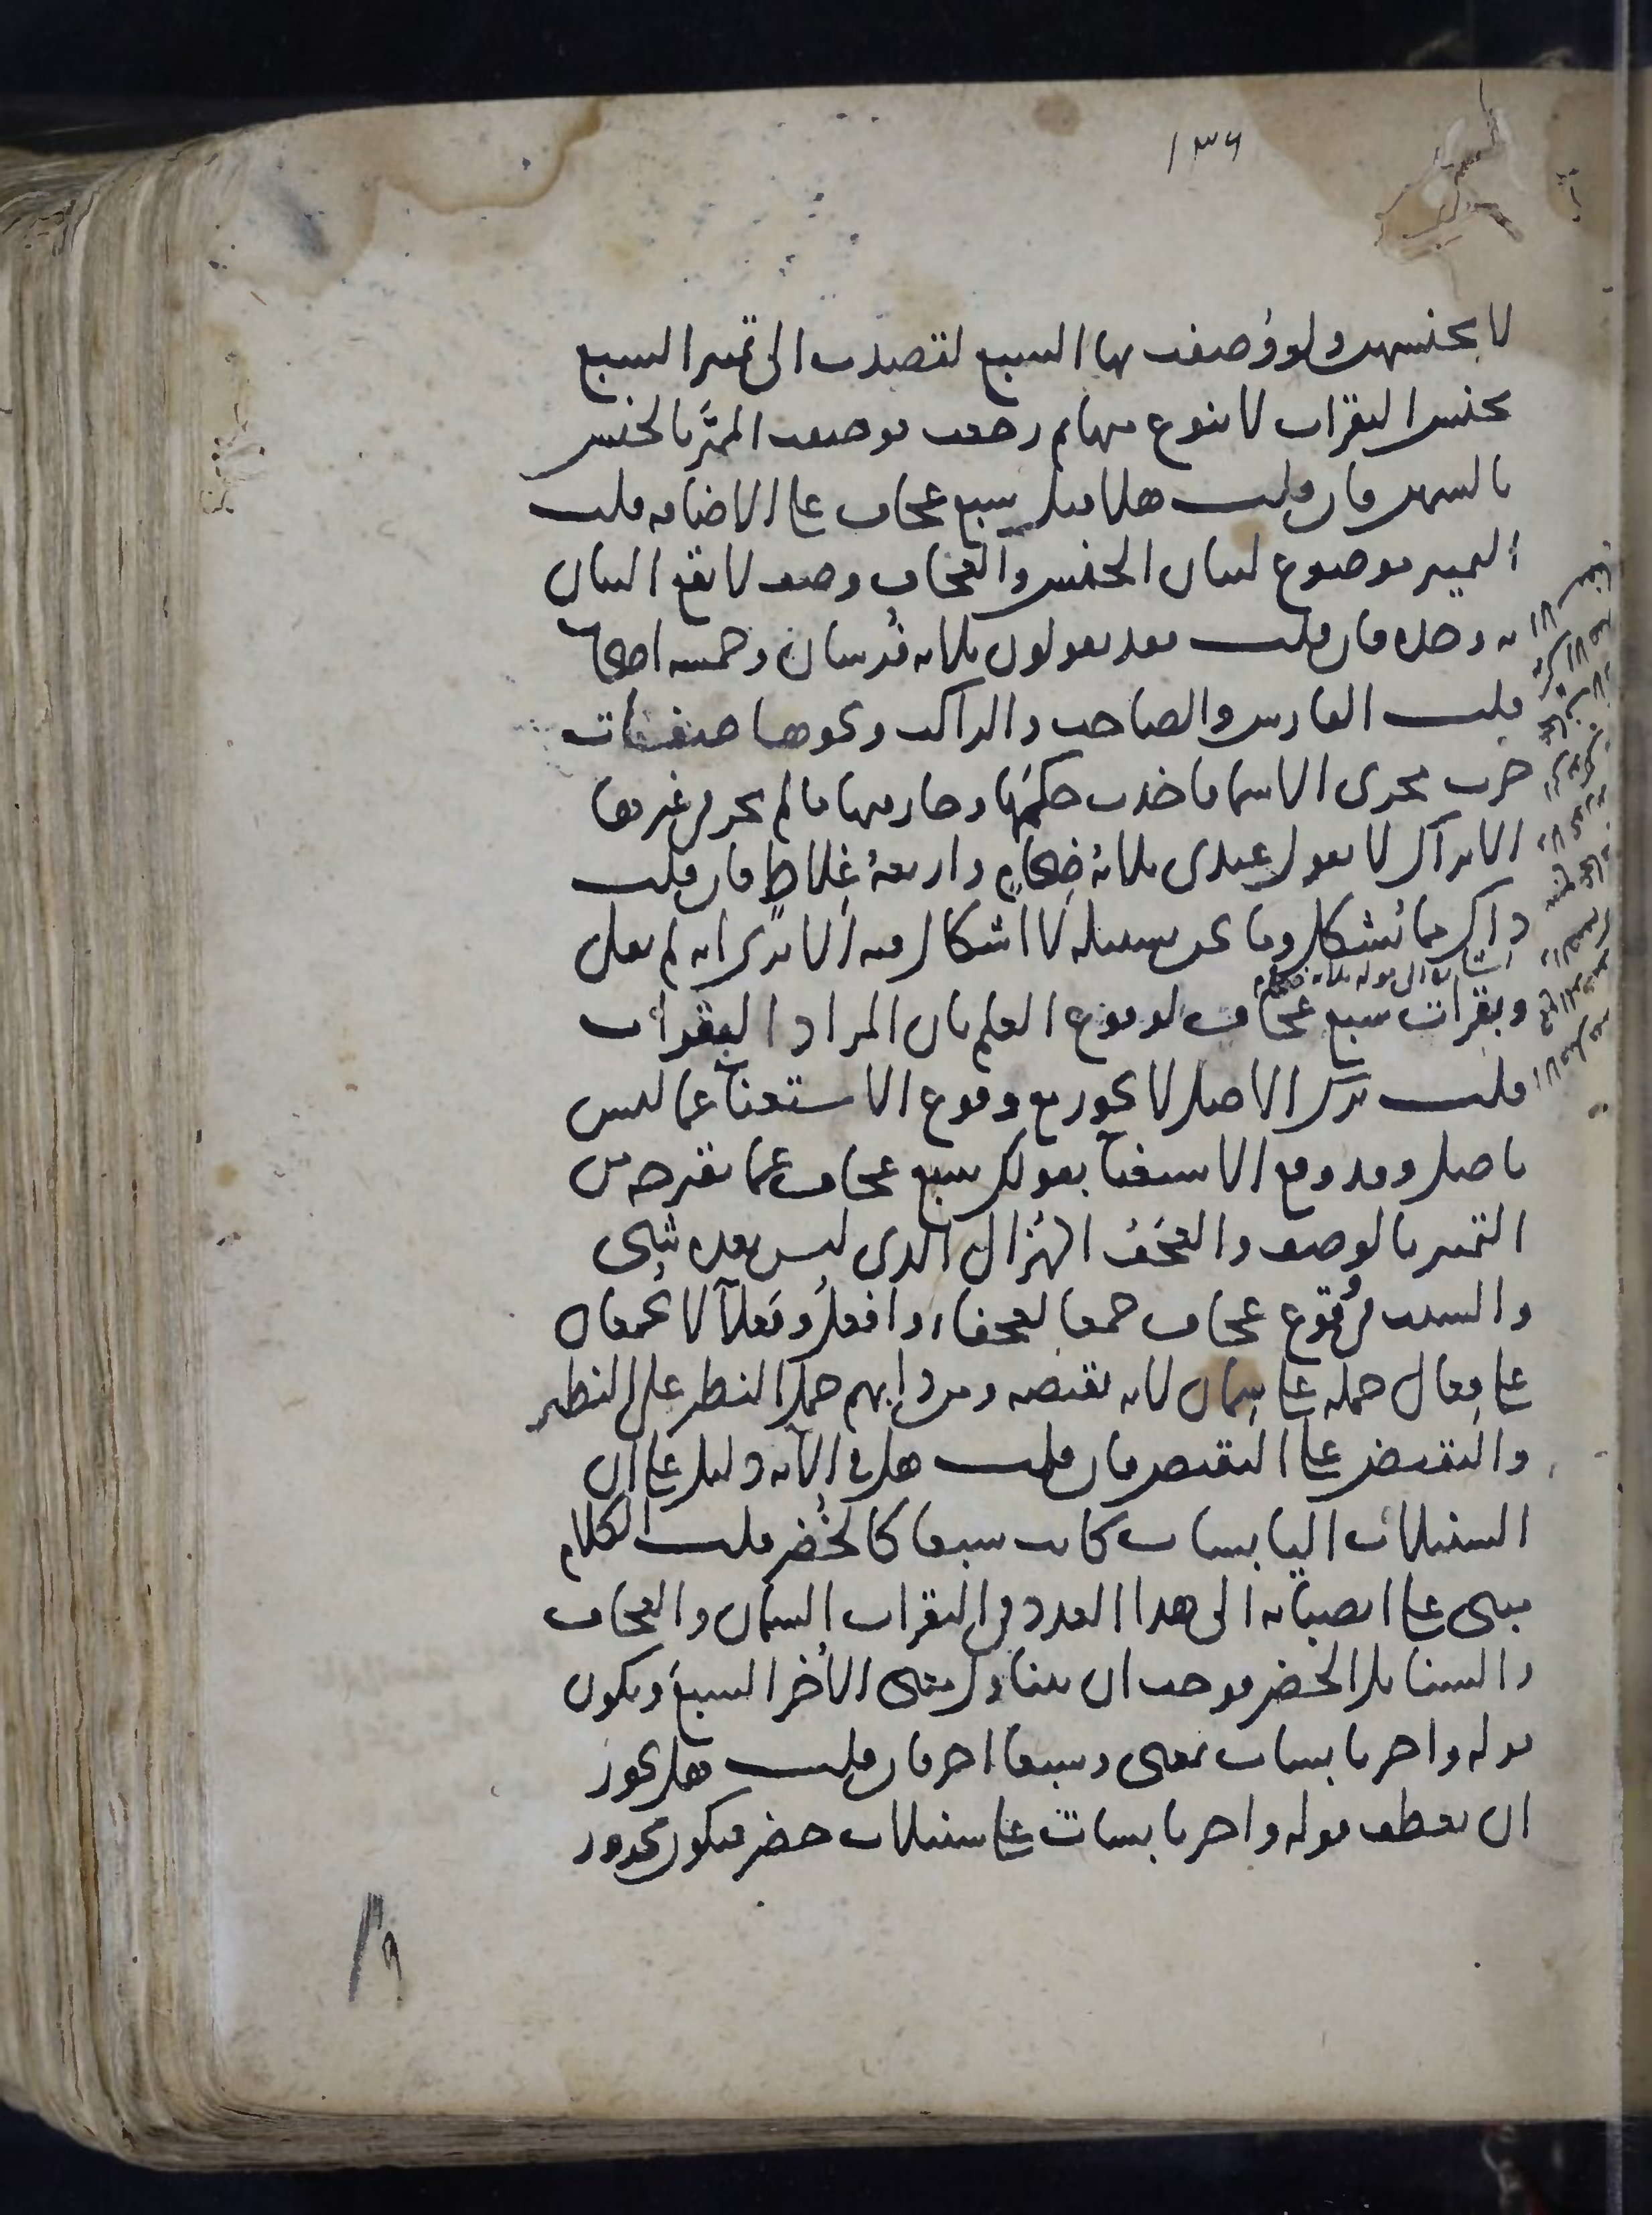 ١٣٦
لا بجنسهن ولو وصفت بها السبع لقصدت الى تمييز السبع
بجنس البقرات لا بنوع منها ثم رجعت فوصفت المميز بالجنس
بالسمن فان قلت هلا قيل سبع عجاف على الاضافة قلت
التمييز موضوع لبيان الجنس والعجاف وصف لا يقع البيان
به وحده فان قلت فقد يقولون ثلاثة فرسان وخمسة اصحاب
قلت الفارس والصاحب والراكب ونحوها صفات
جرت مجرى الاسما فاخذت حكمها وجاز فيها ما لم يجز في غيرها
الا تراك لا تقول عندي ثلاثة ضخام واربعة غلاظ فان قلت
ذاك مما يشكل وما نحن بسبيله لا اشكال فيه الا ترى انه لم يقل
وبقرات سبع عجاف لوقوع العلم بان المراد البقرات
قلت ترك الاصل لا يجوز مع وقوع الاستغنا عما ليس
باصل وقد وقع الاستغنا بقولك سبع عجاف عما تقترحه من
التمييز بالوصف والعجف الهزال الذي ليس بعده شي
والسبب في وقوع عجاف جمعا لعجفاء وافعل وفعلا لا يجمعان
على فعال حمله على سمان لانه نقيضه ومن دابهم حمل النظير على النظير
والنقيض على النقيض فان قلت هل في الاية دليل على ان
السنبلات اليابسات كانت سبعا كالخضر قلت الكلام
مبني على انصبابه الى هذا العدد في البقرات السمان والعجاف
والسنابل الخضر فوجب ان يتناول معنى الاخر السبع ويكون
قوله واخر يابسات بمعنى وسبعا اخر فان قلت هل يجوز
ان يعطف قوله واخر يابسات على سنبلات خضر فيكون مجرور